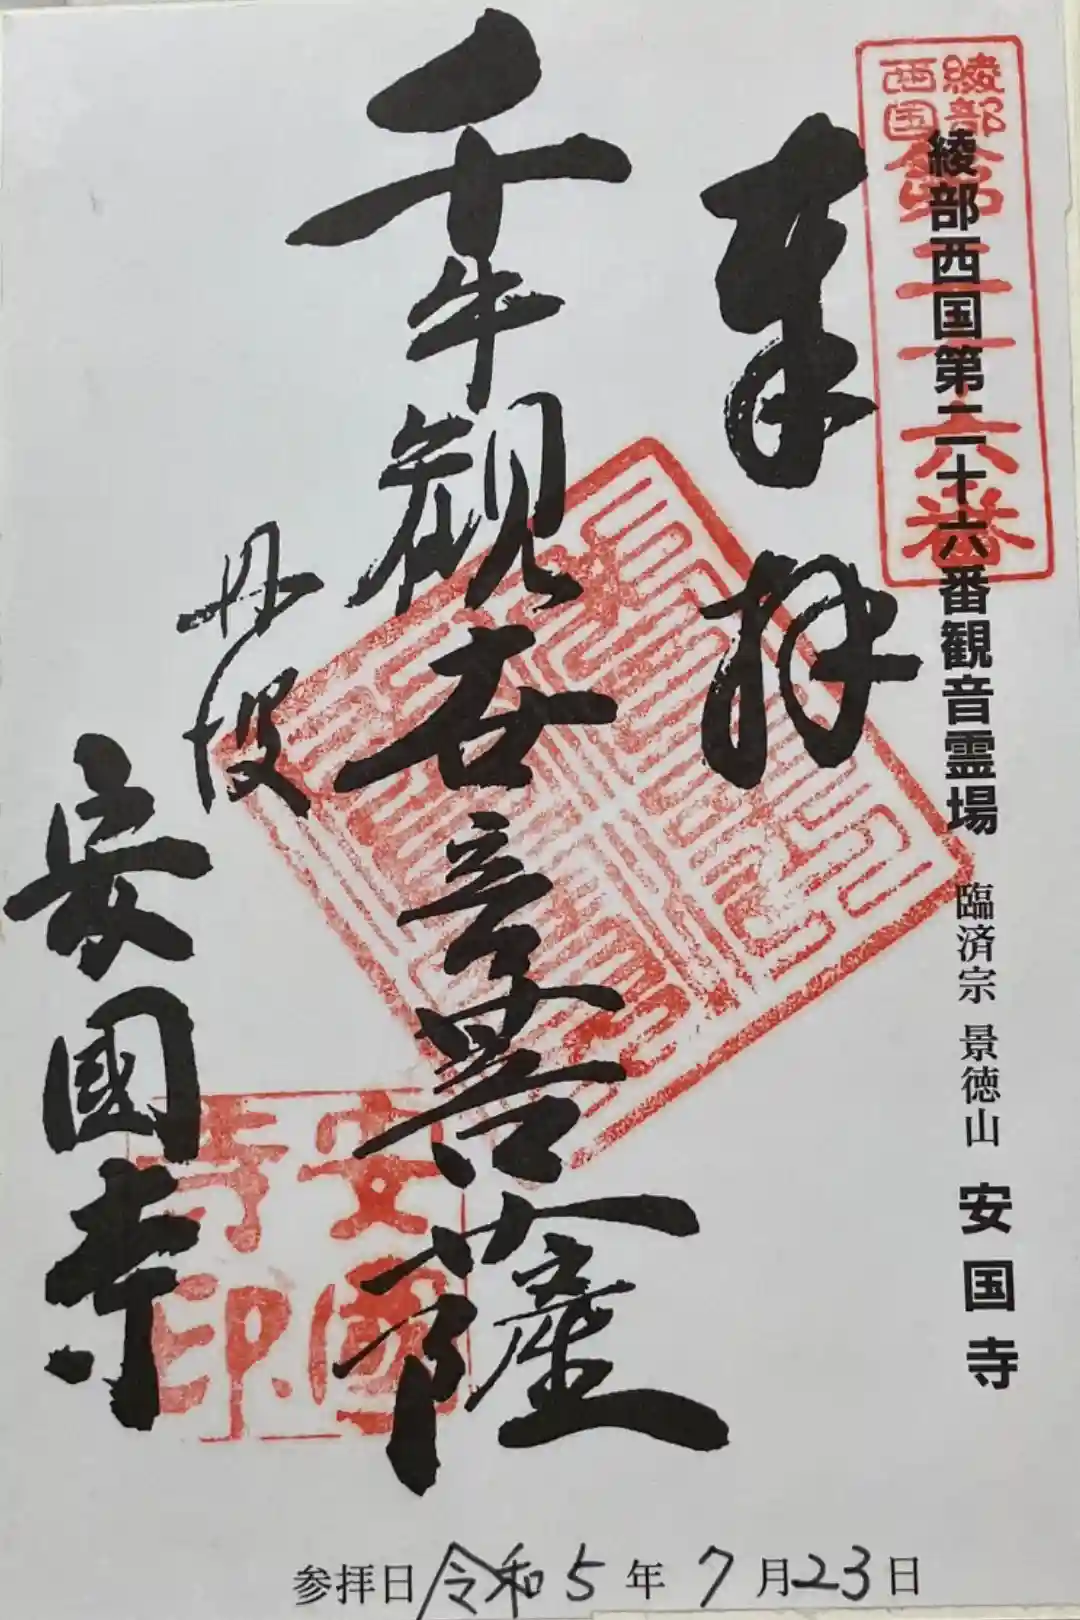 綾部
西国
第二十六番
綾部西国第二十六番観音霊場 臨済宗 景徳山 安国寺
奉拝
千手観世音菩薩
丹波
安國寺
安國
寺印
参拝日 令和5年7月23日